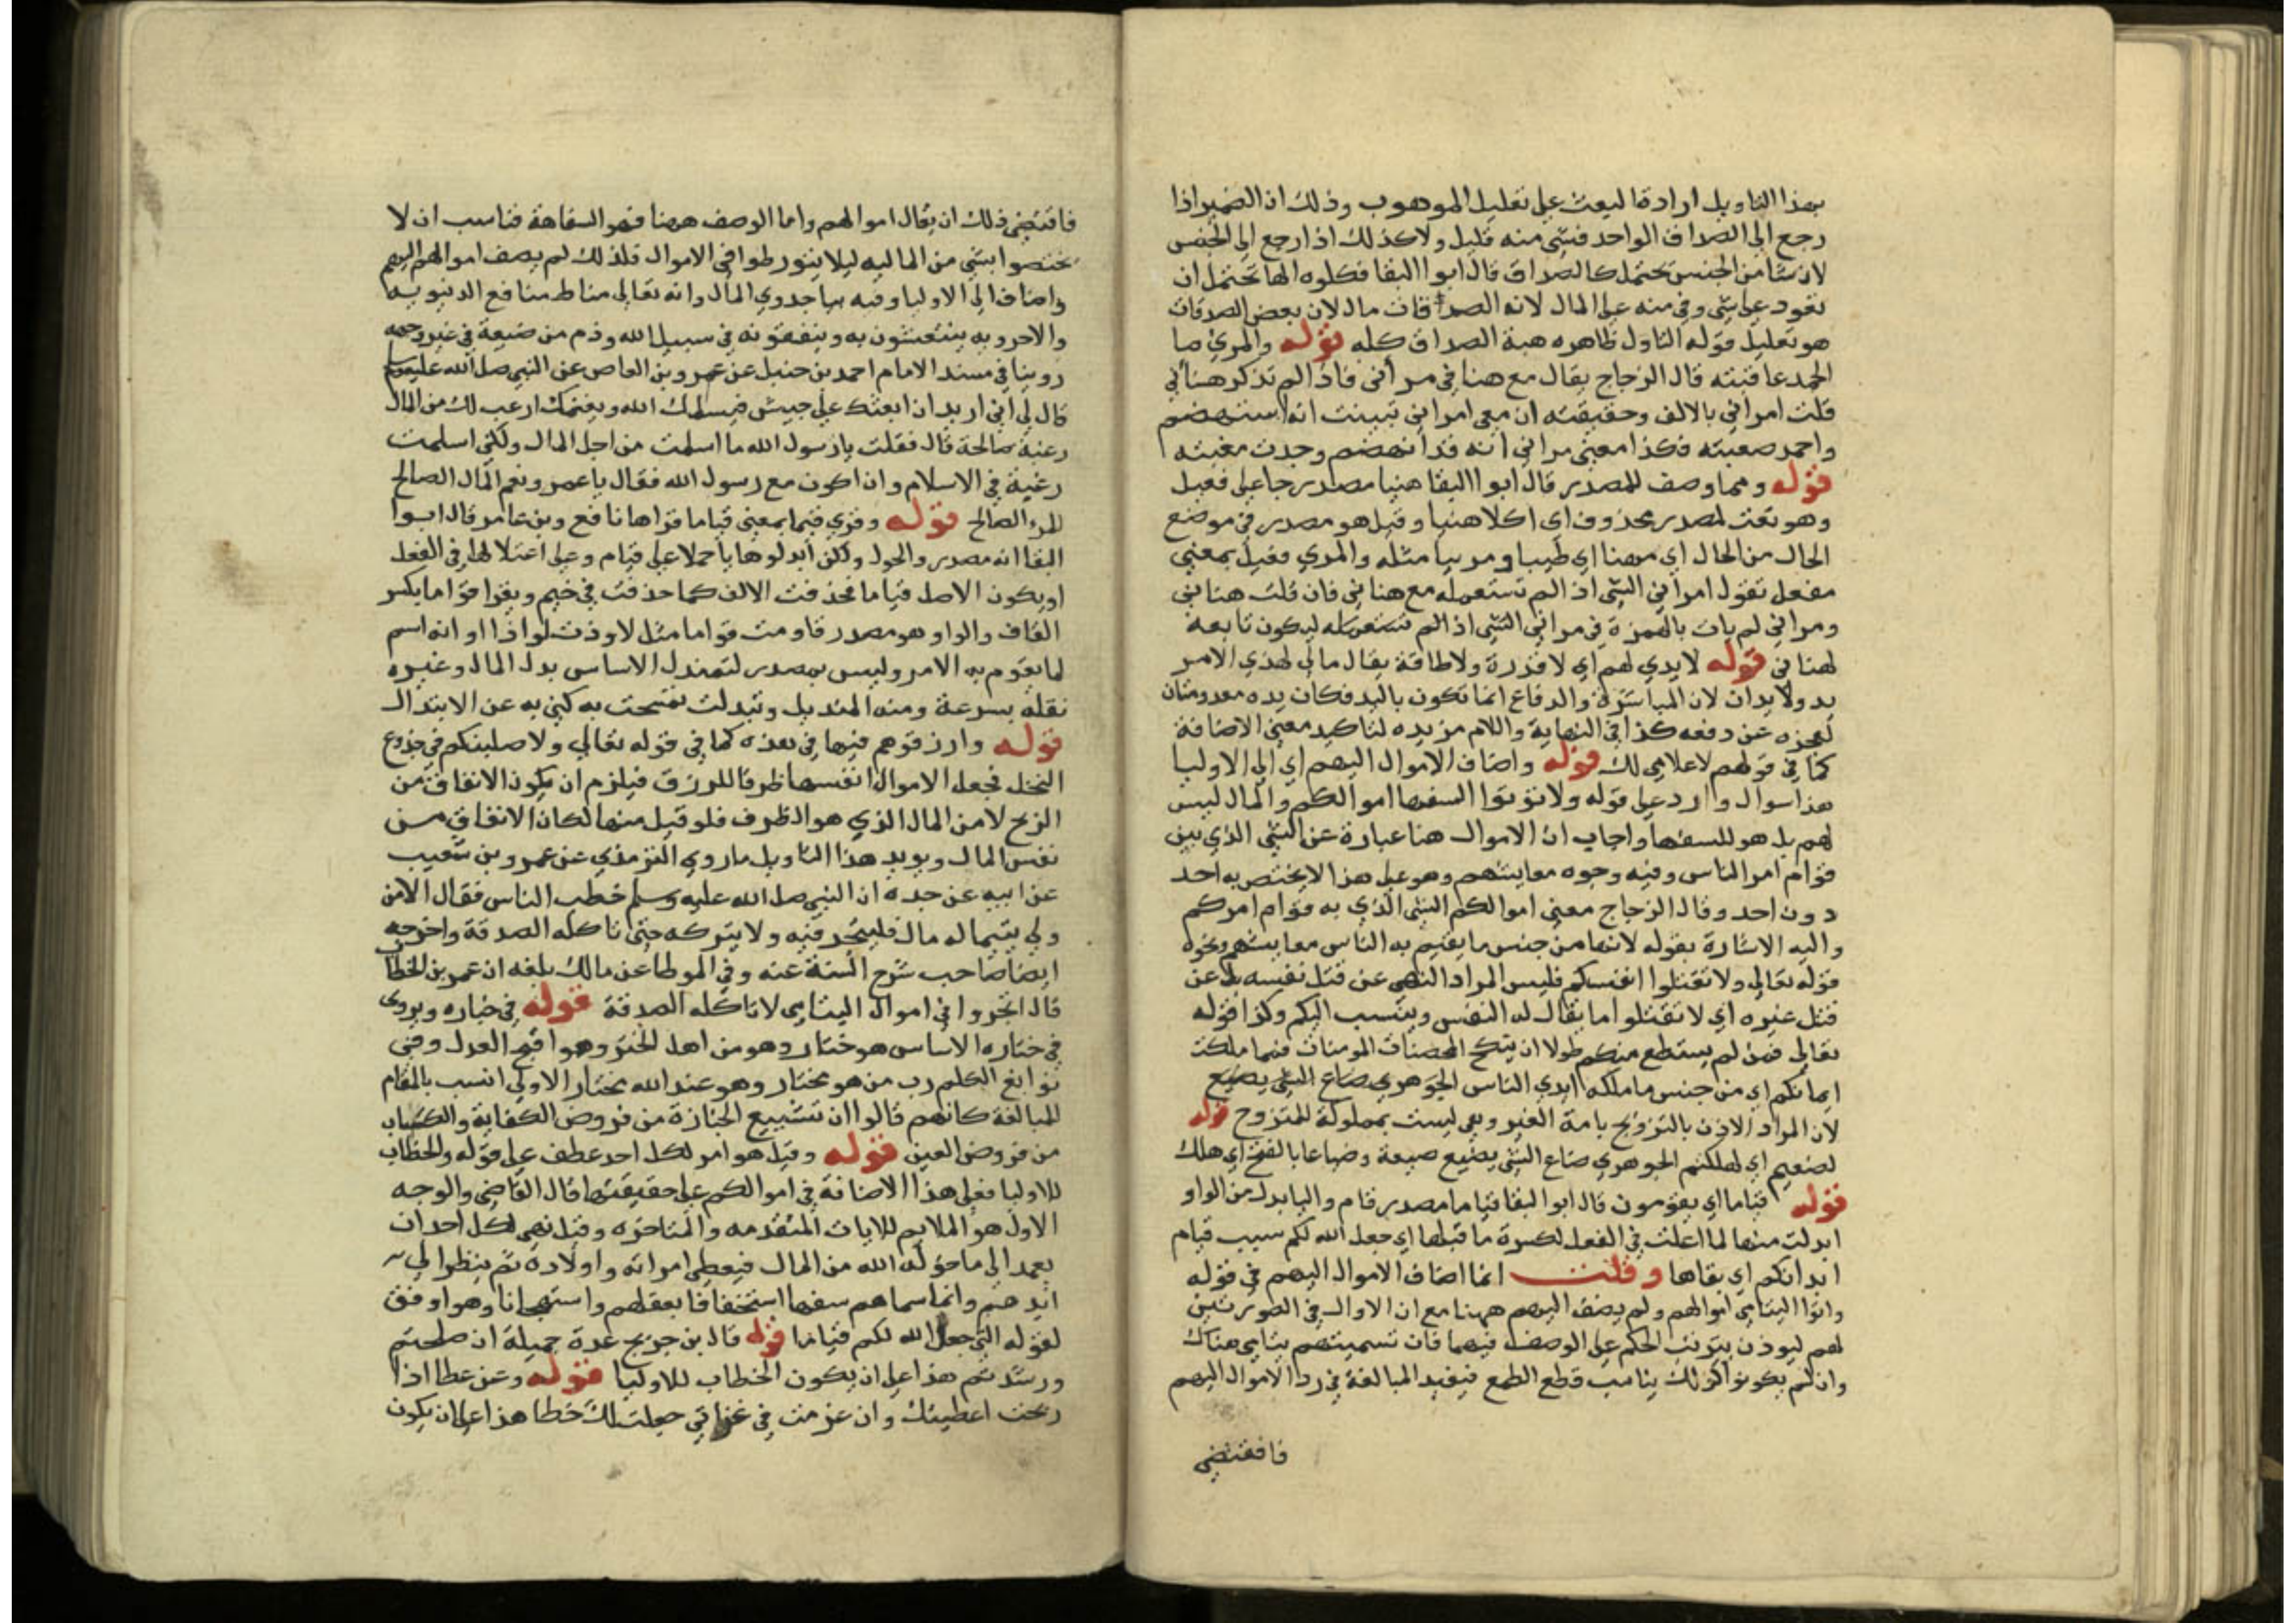 بهذا التاويل ارادة ليعث على تقليل الموهوب وذلك ان الضمير اذا
رجع الى الصداق الواحد فشى منه قليل ولا كذلك اذا رجع الى الجنس
لان شا من الجنس يحتمل كالصداق قال ابوا البقا فكلوه الها تحتمل ان
تعود على شى وفي منه على المال لانه الصداقات مال لان بعض الصدقات
هو تعليل قوله التاول ظاهره هبة الصداق كله قوله والمري ما
الحمد عاقبته قال الزجاج يقال مع هنا في مر انى فاذا لم تذكر هنا ني
قلت امراني بالالف وحقيقته ان معى امراني تبينت انه استهضم
واحمد مغبته فكذا معنى مراني انه قد انهضم وحدت مغبته
قوله وهما وصف للمصدر قال ابوا البقا هنيا مصدر جا على فعيل
وهو نعت لمصدر محذوف اي اكلا هنيا وقيل هو مصدر في موضع
الحال من الحال اي مهنا اي طيبا ومريا مثله والمري فعيل بمعنى
مفعل تقول امراني الشي اذا لم تستعمله مع هناني فان قلت هناني
ومراني لم يات بالهمزة في مراني الشي اذا لم تستعمله ليكون تابعة
لهناني قوله لا يدي لهم اي لا قدرة ولا طاقة يقال مالي لهذي الامر
يد ولا يدان لان المباشرة والدفاع انما تكون باليد فكان يده معدومتان
لعجزه عن دفعه كذا في النهاية واللام مزيده لتاكيد معنى الاضافة
كما في قولهم لا غلامي لك قوله واضاف الاموال اليهم اي الى الاوليا
هذا سوال وارد على قوله ولا توتوا السفها اموالكم والمال ليس
لهم بل هو للسفها واجاب ان الاموال هنا عبارة عن الشي الذي بين
قوام امر الناس وفيه وجوه معايشهم وهو على هذا لا يختص به احد
دون احد وقال الزجاج معنى اموالكم الشي الذي به قوام امركم
واليه الاشارة بقوله لانها من جنس ما يقيم به الناس معايشهم ونحوه
قوله تعالى ولا تقتلوا انفسكم فليس المراد النهى عن قتل نفسه بل عن
قتل غيره اي لا تقتلوا ما يقال له النفس وينسب اليكم وكذا قوله
تعالى فمن لم يستطع منكم طولا ان ينكح المحصنات المومنات فمما ملكت
ايمانكم اي من جنس ما ملكه ايدي الناس الجوهري ضاع الشي يضيع
لان المراد الاذن بالتزويج بامة الغير وهي ليست بمملوكة للمتزوج قوله
لضعيم اي لهلكتم الجوهري ضاع الشي يضيع ضيعة وضياعا بالفتح اي هلك
قوله قياما اي يقومون قال ابوا البقا قياما مصدر قام واليا بدل من الواو
ابدلت منها لما اعلت في الفعل لكسرة ما قبلها اي جعل الله لكم سبب قيام
ابدانكم اي بقاها وقلت انما اضاف الاموال اليهم في قوله
واتوا اليتامى اموالهم ولم يضف اليهم ههنا مع ان الاوال في الصورتين
لهم ليوذن بترتب الحكم على الوصف فيهما فان تسميتهم يتامى هناك
وان لم يكونوا كذلك يناسب قطع الطمع فيفيد المبالغة في رد الاموال اليهم
فاقتضى
فاقتضى ذلك ان يقال اموالهم واما الوصف ههنا فهو السفاهة فناسب ان لا
يختصوا بشى من المالية ليلا يتورطوا في الاموال فلذلك لم يضف اموالهم اليهم
واضاف الى الاوليا وفيه بيا جدوي المال وانه تعالى مناط منافع الدنيوية
والاخروية ينتعشون به وينفقونه في سبيل الله وذم من ضيعة في غير وجهه
روينا في مسند الامام احمد بن حنبل عن عمرو بن العاص عن النبي صلى الله عليه وسلم
قال لي اني اريد ان ابعثك على جيش فيسلمك الله ويغنمك ارعب لك من المال
رعبة صالحة قال فقلت يا رسول الله ما اسلمت من اجل المال ولكني اسلمت
رغبة في الاسلام وان اكون مع رسول الله فقال يا عمرو نعم المال الصالح
للمرء الصالح قوله وقري قيما بمعنى قياما قراها نافع وبن عامر قال ابوا
البقا انه مصدر والحول ولكن ابدلوها يا حملا على قيام وعلى اعتلالها في الفعل
او يكون الاصل قياما فحذفت الالف كما حذفت في خيم ويقرا قواما بكسر
القاف والواو وهو مصدر قاومت قواما مثل لاوذت لواذا او انه اسم
لما يقوم به الامر وليس بمصدر لتمندل الاساس بدل المال وغيره
نقله بسرعة ومنه المنديل وتبدلت تمسحت به كنى به عن الابتدال
قوله وارزقوهم فيها في هذه كما في قوله تعالى ولاصلبنكم في جذوع
النخل فجعل الاموال انفسها ظرفا للرزق فيلزم ان يكون الانفاق من
الربح لا من المال الذي هو الظرف فلو قيل منها لكان الانفاق من
نفس المال ويويد هذا التاويل ما روي الترمذي عن عمرو بن شعيب
عن ابيه عن جده ان النبي صلى الله عليه وسلم خطب الناس فقال الا من
ولي يتيما له مال فليتجر فيه ولا يتركه حتى تاكله الصدقة واخرجه
ايضا صاحب شرح السنة عنه وفي الموطا عن مالك بلغه ان عمر بن الخطاب
قال اتجروا في اموال اليتامى لا تاكله الصدقة قوله في خياره ويروى
في ختاره الاساس هو ختار وهو من اهل الختر وهو اقبح العدل وفي
نوابغ الكلم رب من هو مختار وهو عند الله مختار الاولى انسب بالمقام
للمبالغة كانهم قالوا ان تشييع الجنازة من فروض الكفاية والكتاب
من فروض العين قوله وقيل هو امر لكل احد عطف على قوله والخطاب
للاوليا فعلى هذا الاضافة في اموالكم على حقيقتها قال القاضى والوجه
الاول هو الملايم للايات المتقدمه والمتاخره وقيل نهى لكل احد ان
يعمد الى ما خوله الله من المال فيعطى امراته واولاده ثم ينظر الى
ايديهم وانما سماهم سفها استخفافا بعقلهم واستهجانا وهو اوفق
لقوله التي جعل الله لكم قياما قوله قال بن جريج عدة جميلة ان صلحتم
ورشدتم هذا على ان يكون الخطاب للاوليا قوله وعن عطا اذا
ربحت اعطيتك وان غنمت في غزاتي جعلت لك خطا هذا على ان يكون